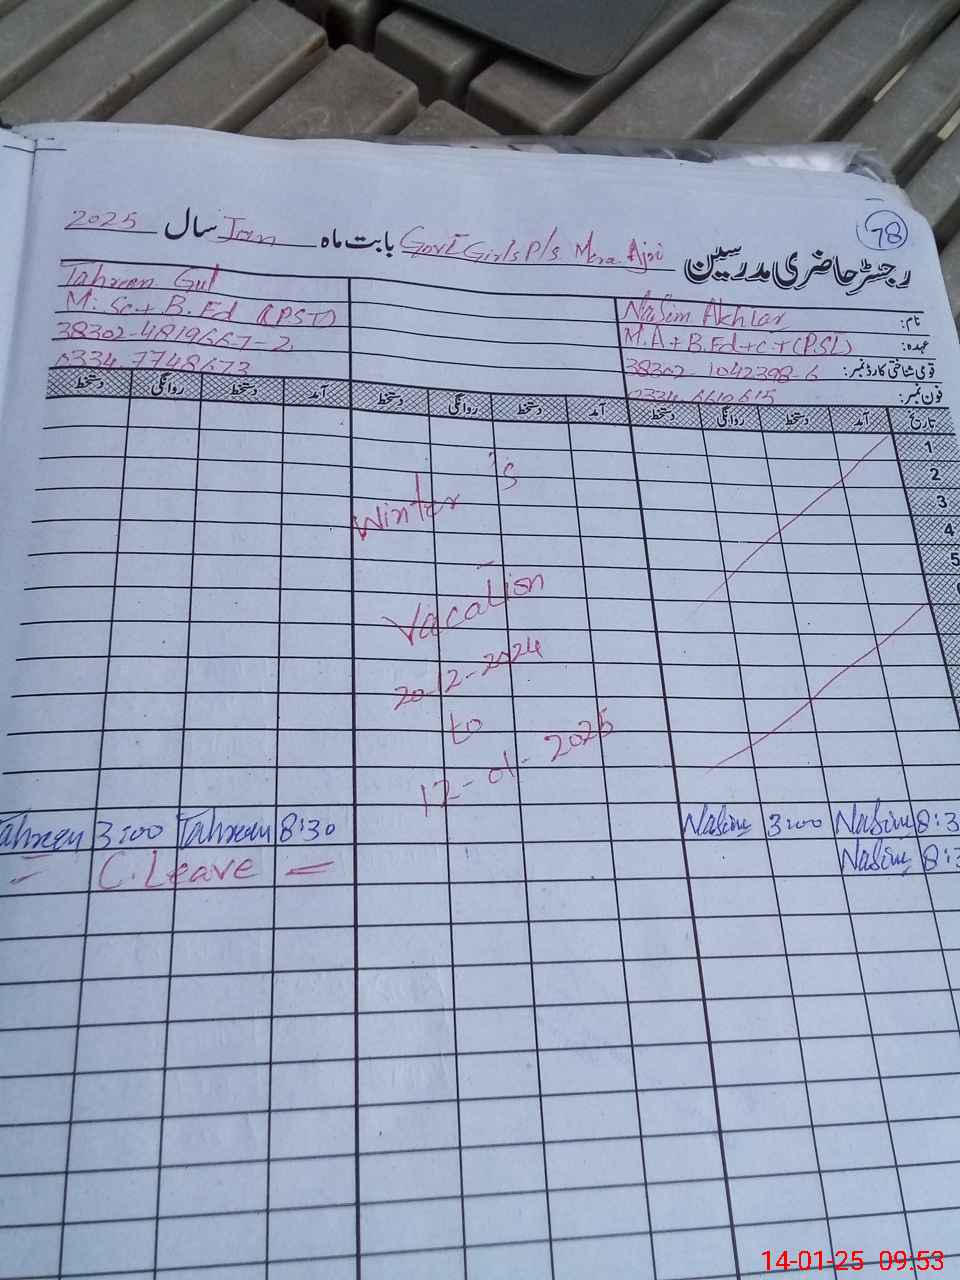 78
رجسٹر حاضری مدرسین Govt Girls P/s Mera Ajri بابت ماہ Jan سال 2025
نام: Nasim Akhtar
Tahreem Gul
عہدہ: M.A + B.Ed + C.T (PSL)
M.Sc + B.Ed (PST)
قومی شناختی کارڈ نمبر: 38302-1042398-6
38302-4819667-2
فون نمبر: 0334 6640615
0334 7748673
تاریخ آمد دستخط روانگی دستخط آمد دستخط روانگی دستخط آمد دستخط روانگی دستخط
1
2
3
4
5
Winter's
Vacation
20-12-2024
to
12-01-2025
Tahreem 3:00 Tahreem 8:30 Nasim 3:00 Nasim 8:3
= C. Leave = Nasim 8:3
14-01-25 09:53